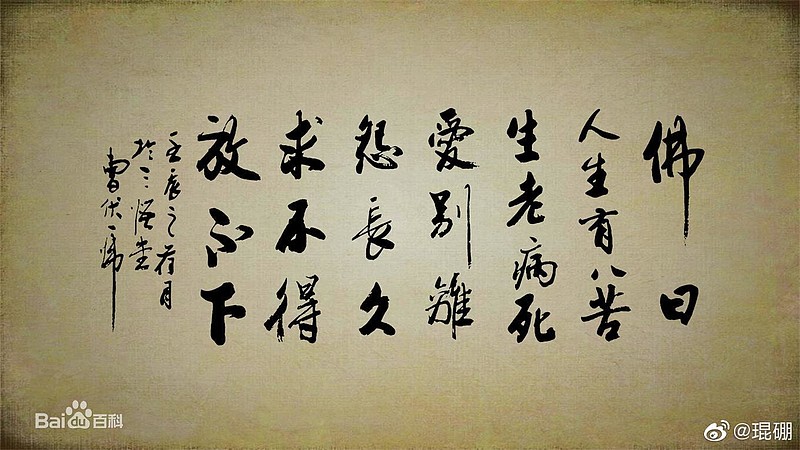 佛曰
人生有八苦
生老病死
愛别離
怨長久
求不得
放不下
壬辰之荷月
於三悟堂
曹伏虎
Baidu百科
@琨硼